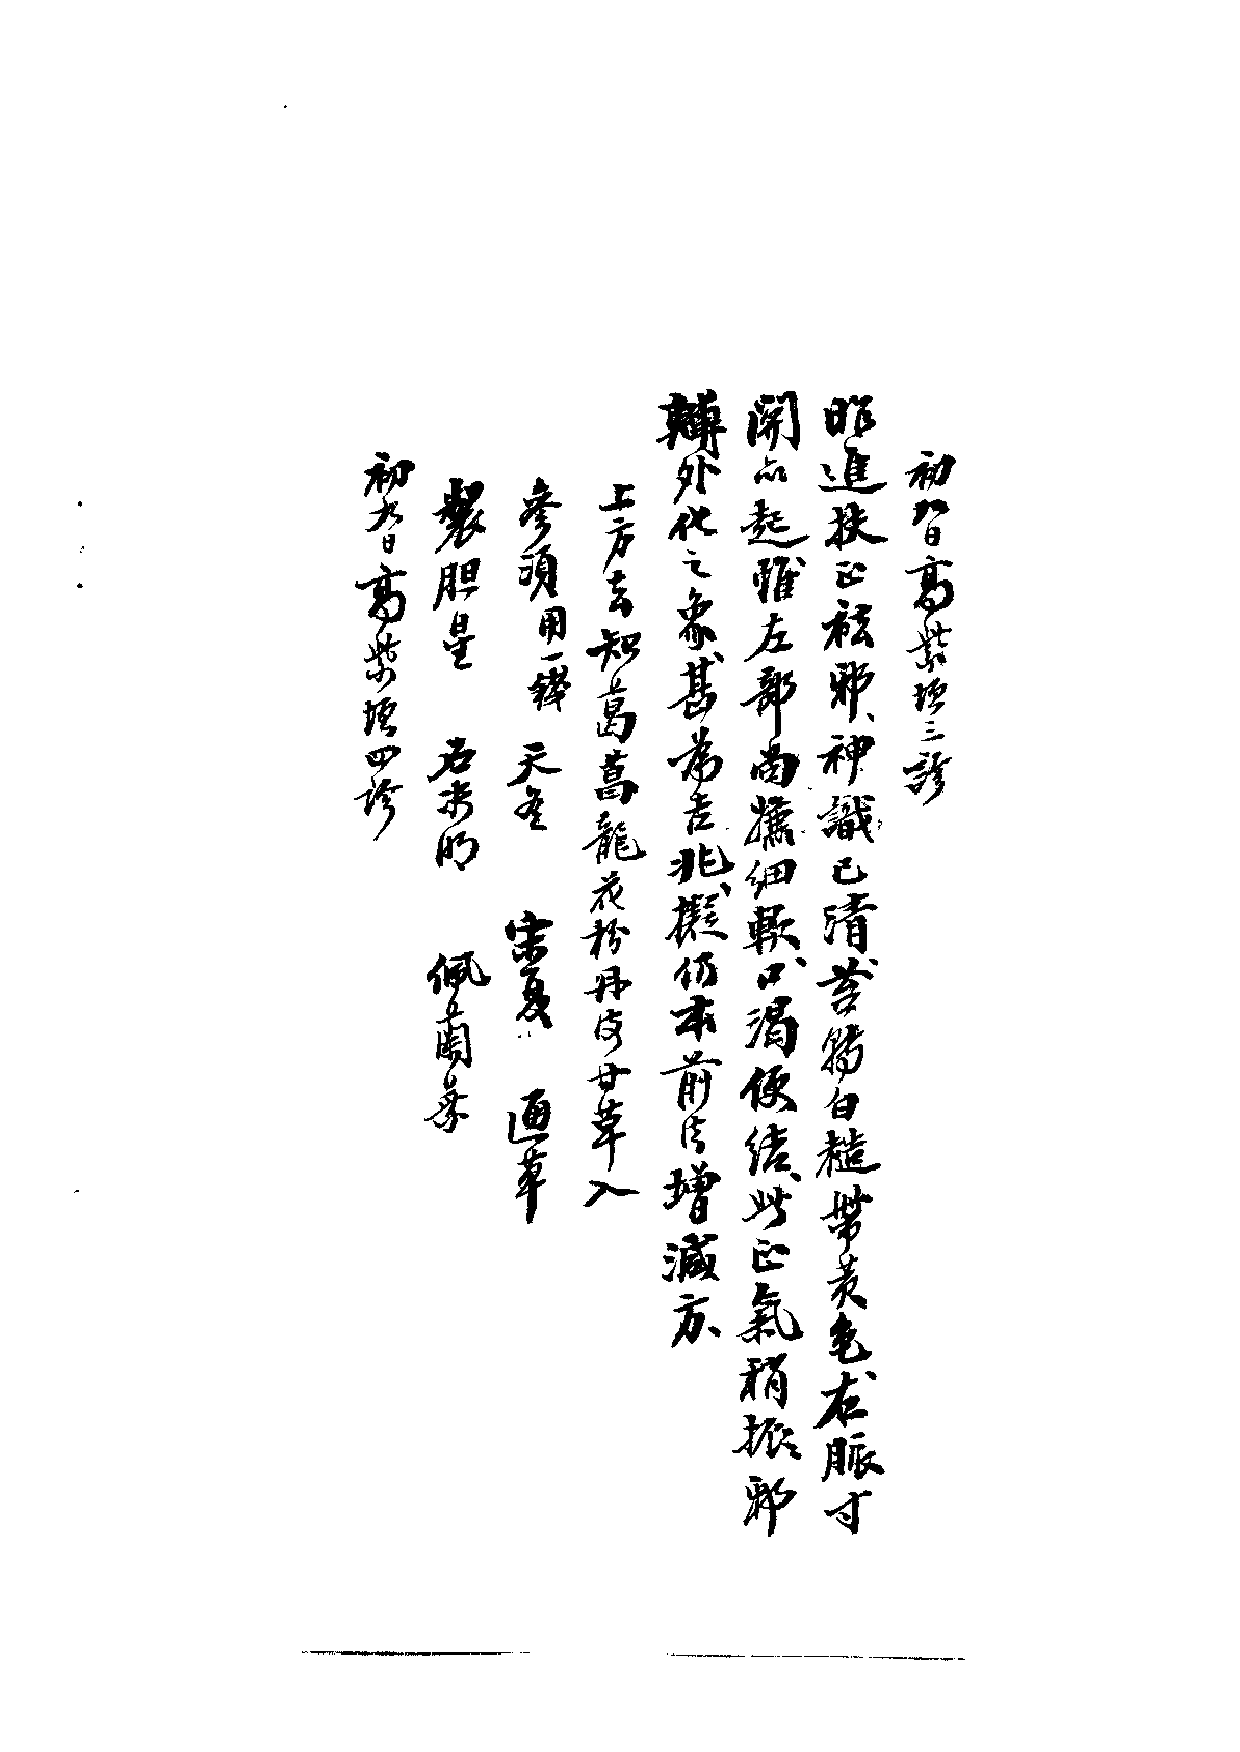 初八日高紫垣三診
昨進扶正祛邪、神識已清、苔腸白糙帶灰色、右脈寸
關亦起、雖左部尚濡細軟、口渴便結、此正氣稍振、邪
轉外化之象、甚為吉兆、擬仿本前法增減方、
上方去知葛菖龍花粉丹皮甘草入
參須用一錢 天冬 宋夏 通草
製胆星 石決明 佩蘭葉
初九日高紫垣四診